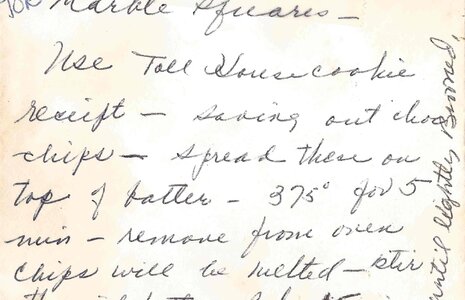 for Marble Squares —
Use Toll House cookie
receipt — saving out choc
chips — spread these on
top of batter — 375° for 5
min — remove from oven
chips will be melted — stir
until lightly Browned,